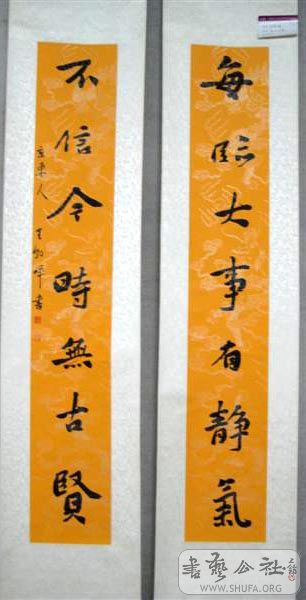 每临大事有静氣
不信今時無古賢
京東人 王 書
書藝公社
WWW.SHUFA.ORG